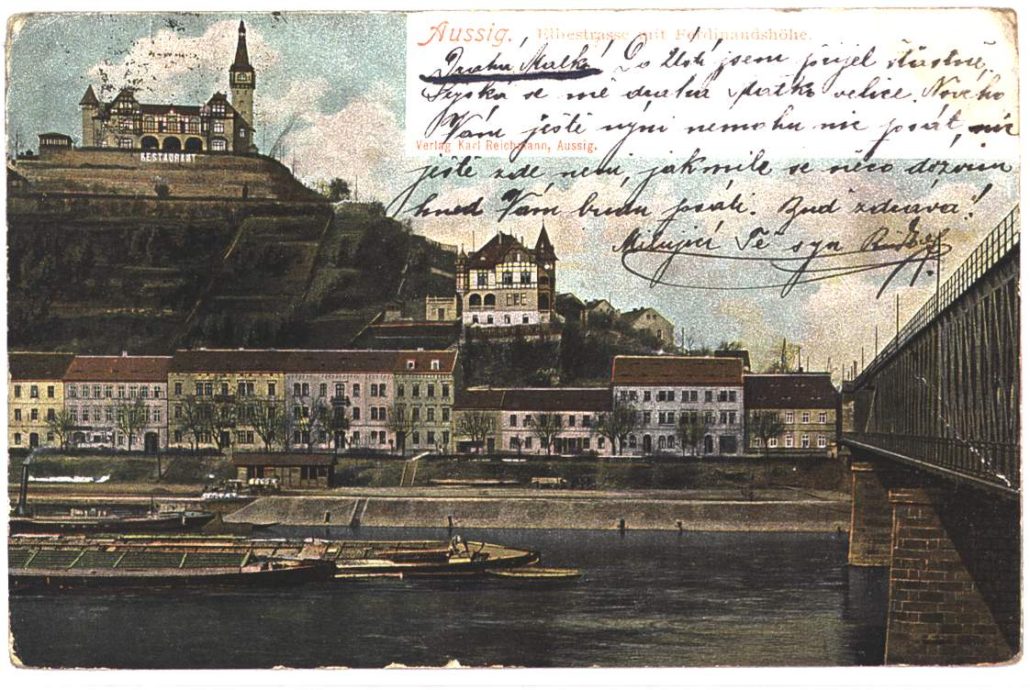 Aussig. Elbestrasse mit Ferdinandshöhe.
Drahá Matko! Do Ústí jsem přijel šťastně.
Stýská se mě drahá Matko velice. Nového
Vám ještě nyní nemohu nic psát, nic
Verlag Karl Reichmann, Aussig.
ještě zde není, jakmile se něco dozvím
hned Vám budu psáti. Buď zdráva!
Milující Tě syn
RESTAURANT